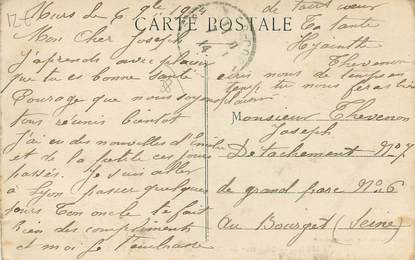 CARTE POSTALE
Mars le 6 9bre 1914
Mon Cher Joseph
J'aprends avec plaisir
que tu es bonne santé
Courage que nous soyons
tous réunis bientot
J'ai eu des nouvelles d'Emile
et de la petite ces jours
passés. Je suis aller
à Lyon passer quelques
jours Ton oncle te fait
bien des compliments
et moi je t'embrasse
de tout coeur
Ta tante
Hyacinthe
Thevenon
écris nous de temps en
temps tu nous feras bien
plaisir
Monsieur Thevenon
Joseph
Détachement No 7
de grand parc No 6
Au Bourget (Seine)